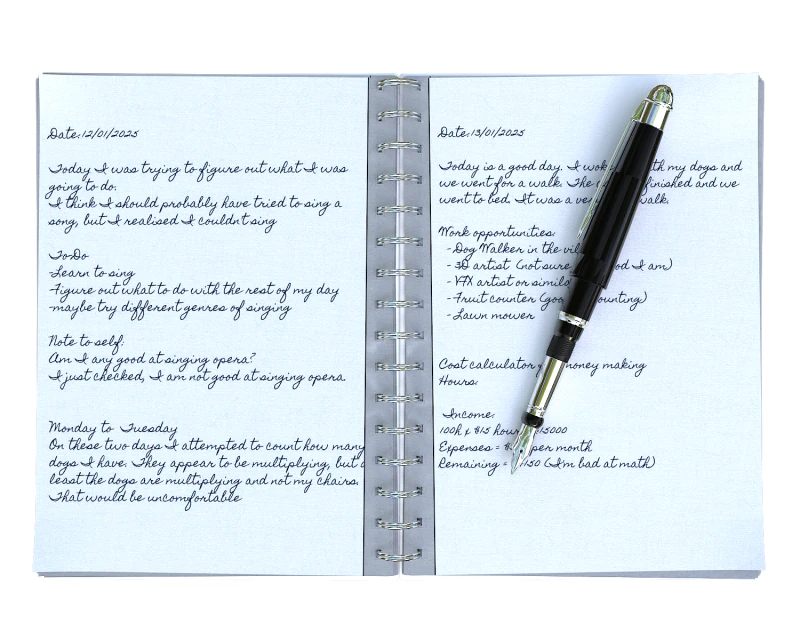 Date:12/01/2025
Today I was trying to figure out what I was
going to do.
I think I should probably have tried to sing a
song, but I realised I couldnt sing
To-Do
-Learn to sing
-Figure out what to do with the rest of my day
-maybe try different genres of singing
Note to self:
Am I any good at singing opera?
I just checked, I am not good at singing opera.
Monday to Tuesday
On these two days I attempted to count how many
dogs I have. They appear to be multiplying, but
least the dogs are multiplying and not my chairs.
That would be uncomfortable
Date:13/01/2025
Today is a good day. I my dogs and
we went for a walk. The finished and we
went to bed. It was a walk.
Work opportunities:
-Dog Walker in the
-3D artist (not sure I am)
-VFX artist or
-Fruit counter
-Lawn mower
Cost calculator money making
Hours:
Income:
100h x $15
Expenses = per month
Remaining = (I'm bad at math)